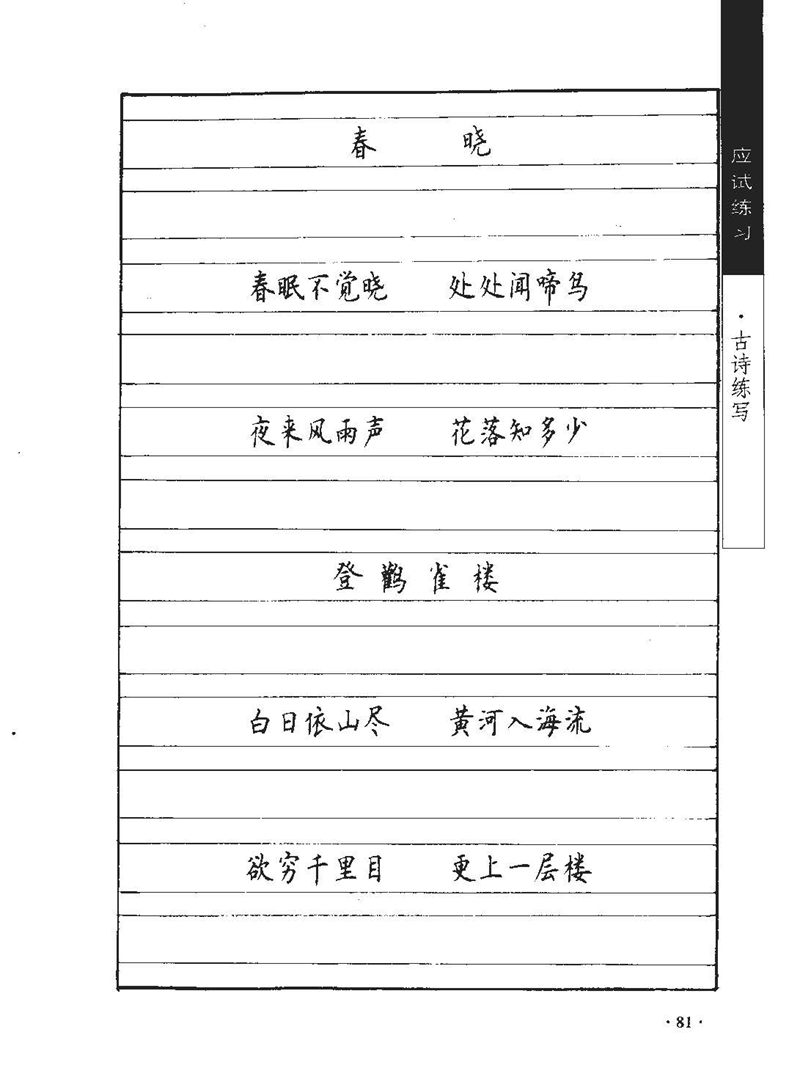 春 晓
春眠不觉晓 处处闻啼鸟
夜来风雨声 花落知多少
登鹳雀楼
白日依山尽 黄河入海流
欲穷千里目 更上一层楼
应试练习
·古诗练写
·81·